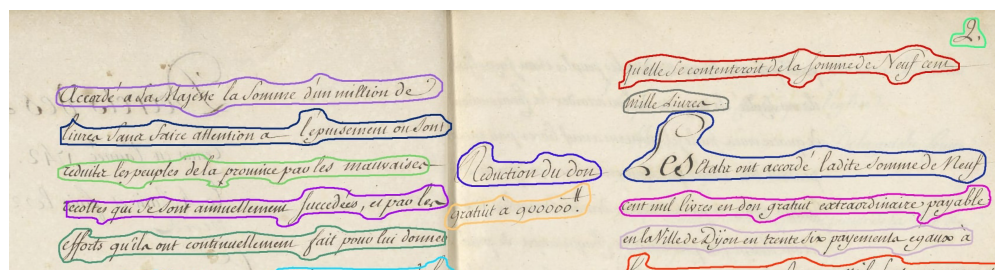 Accordé a Sa Majesté la Somme d'un million de
livres Sans faire attention a l'epuisement ou Sont
reduits les peuples de la province par les mauvaises
recoltes qui se sont annuellement Succedées, et par les
efforts qu'ils ont continuellement fait pour lui donner
2.
qu'elle se contenteroit de la somme de Neuf cent
mille Livres
Reduction du don
gratuit à 900000.tt
Les Etats ont accordé ladite Somme de Neuf
cent mil livres en don gratuit extraordinaire payable
en la Ville de Dijon en trente six payements egaux à